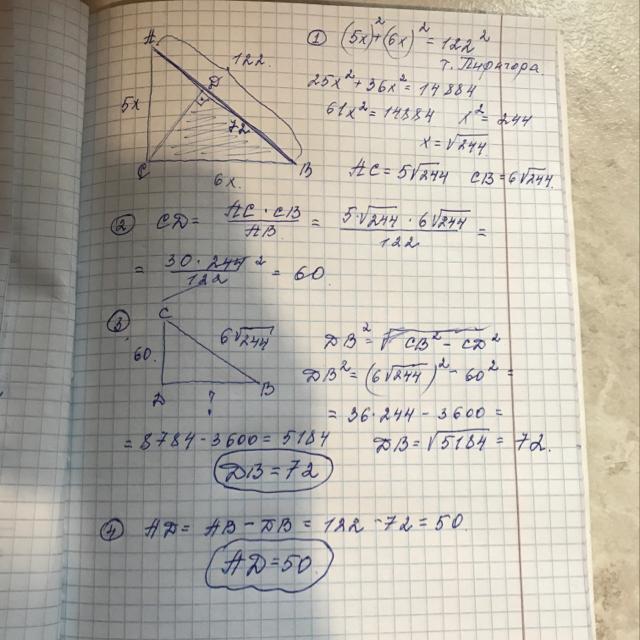 A
122
D
5x
72
C
B
6x.
① (5x)²+(6x)² = 122²
т. Пифагора.
25x²+36x² = 14884
61x² = 14884 x² = 244
x = √244
AC = 5√244 CB = 6√244.
② CD = AC · CB / AB = 5·√244 · 6√244 / 122 =
= 30 · 244 ² / 122 = 60.
③ C
60.
6√244
D
B
?
DB² = √CB² - CD²
DB² = (6√244)² - 60² =
= 36·244 - 3600 =
= 8784 - 3600 = 5184 DB = √5184 = 72.
DB = 72
④ AD = AB - DB = 122 - 72 = 50.
AD = 50.